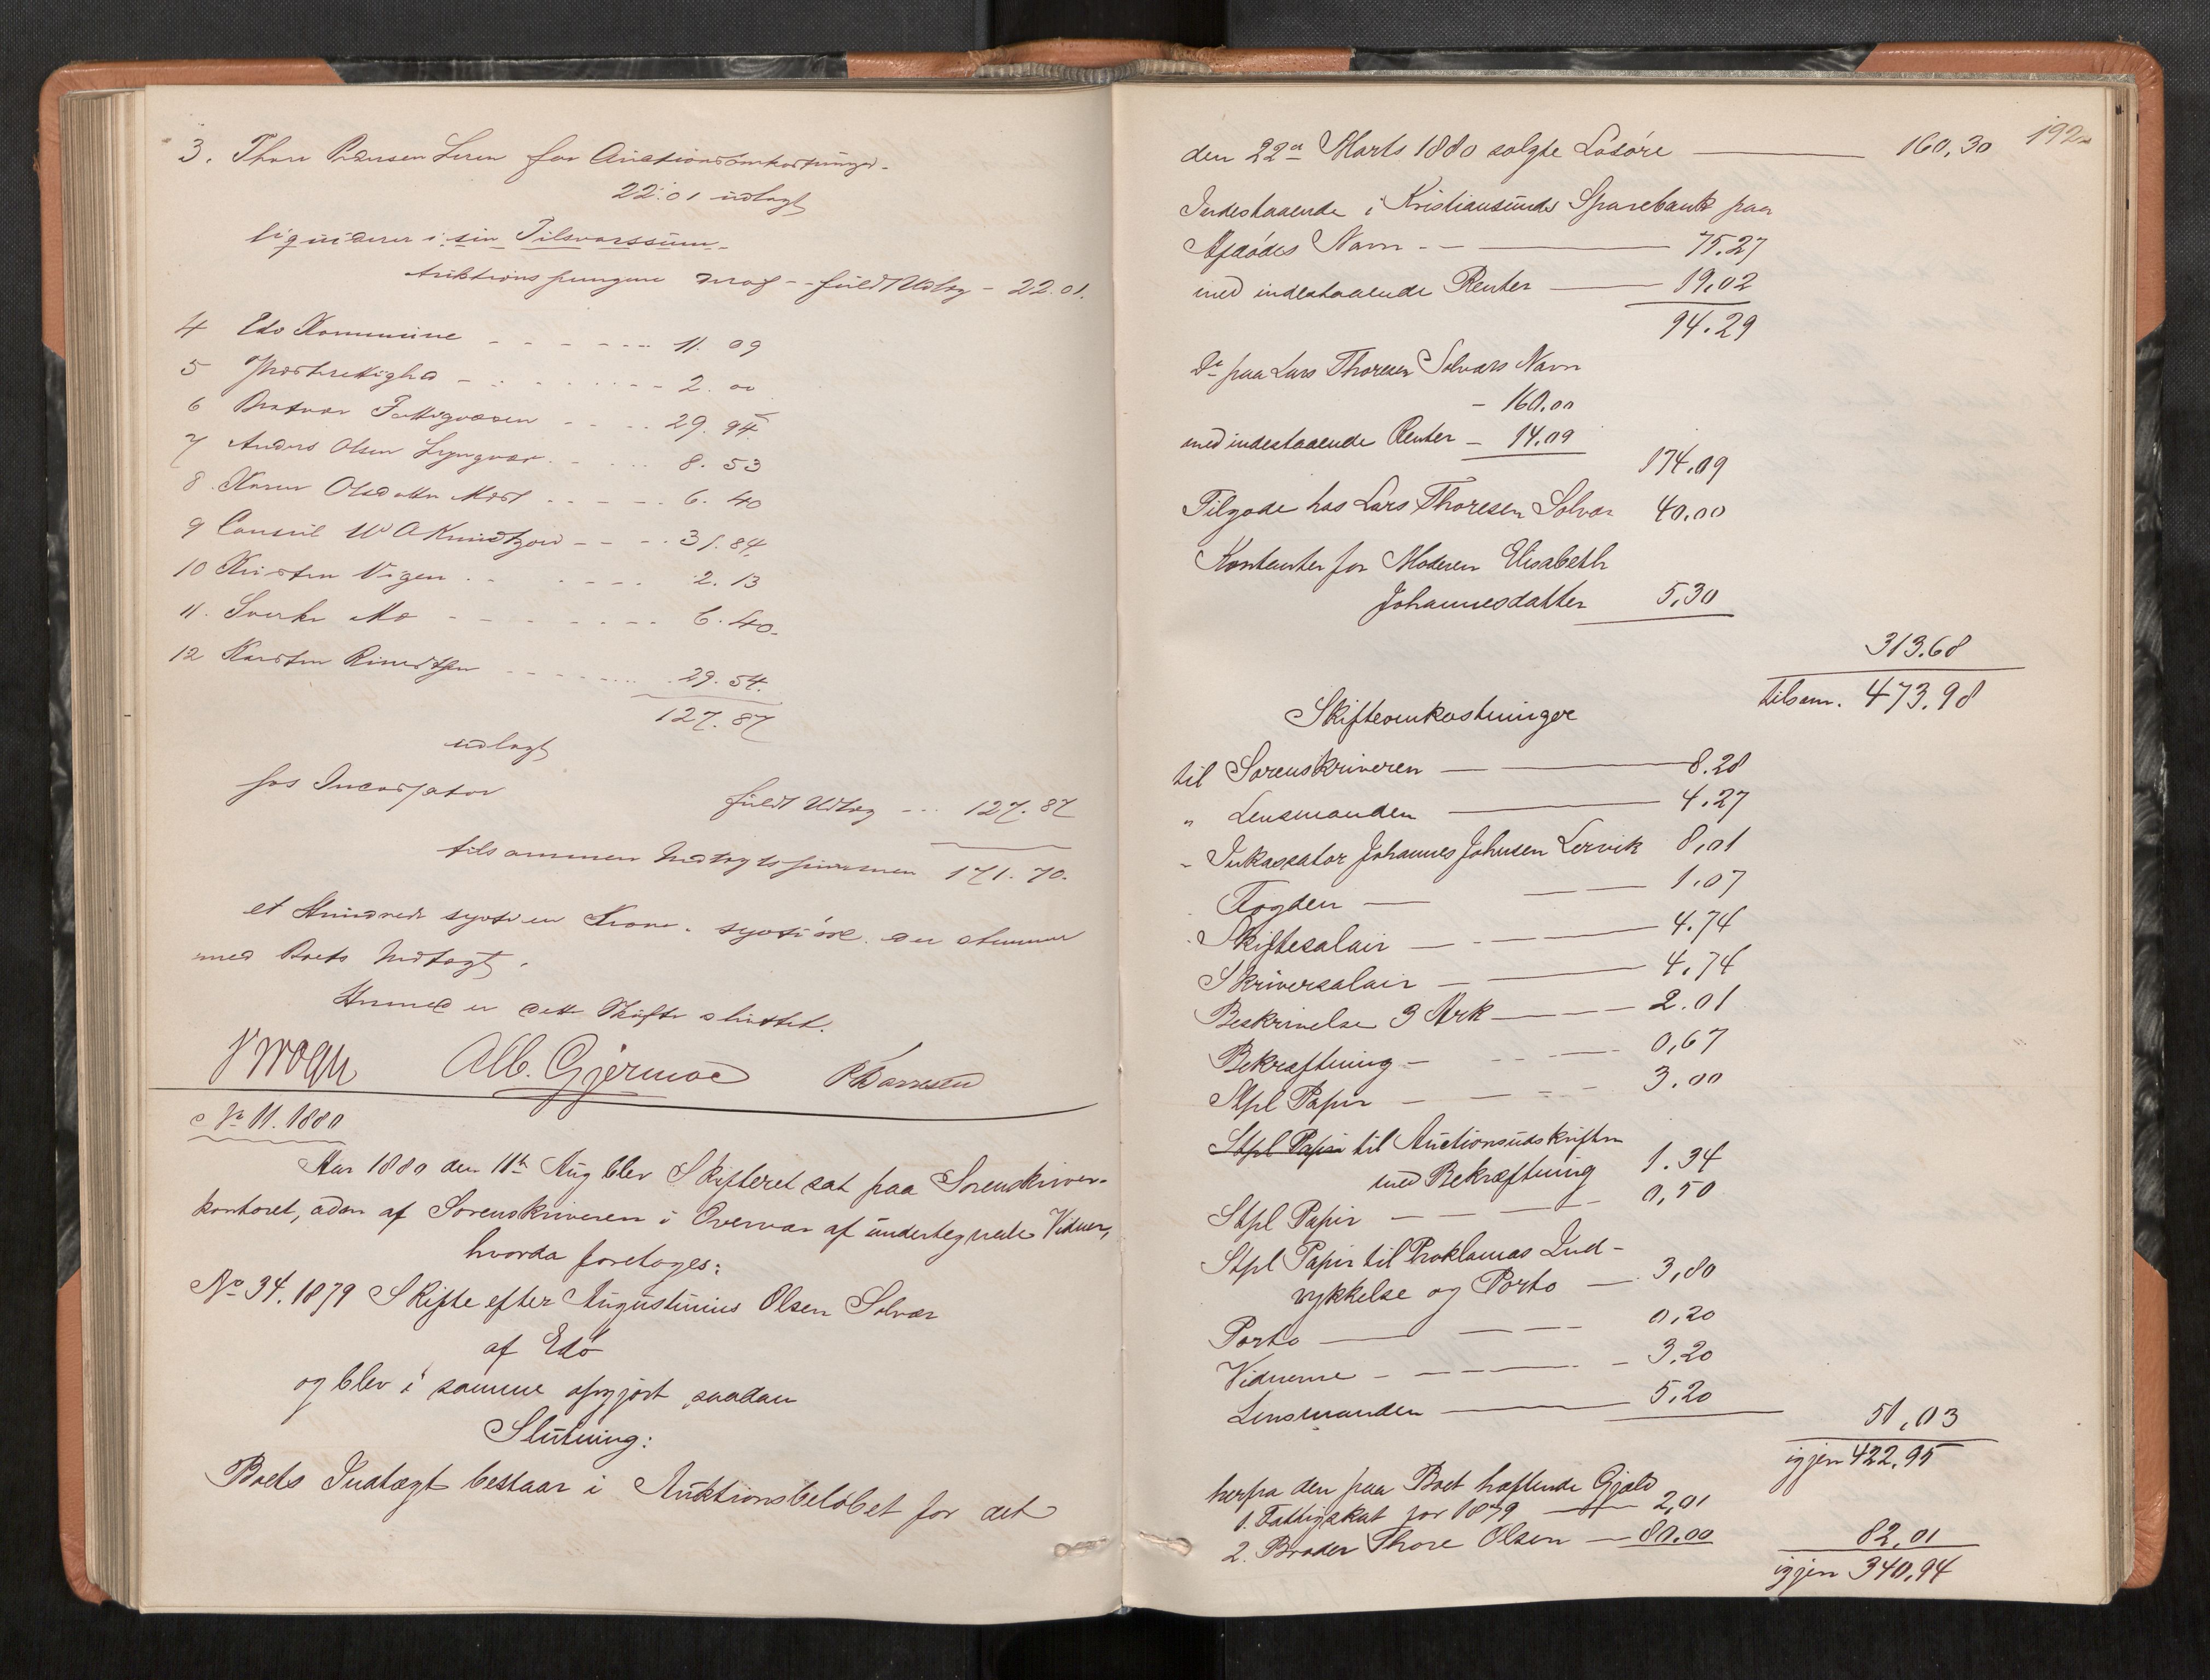 3. Thore Pedersen Leren for Auctionsomkostninger
22.01 udlagt
liquiderer i sin Tilsvarssum
Auktionspengene fuldt Udlæg - 22.01.
4 Edø Kommune - - - - - - 11.09
5 Præsterettighed - - - - - - 2.00
6 Bratvær Fattigvæsen - - - - 29.94
7 Anders Olsen Lyngvær - - - - 8.53
8. Karen Olsdatter - - - - - 6.40
9 Consul W A Knudtzon - - - - 31.84
10 Kirsten Vigen - - - - - - 2.13
11. Sverke Mo - - - - - - - - 6.40.
12 Karsten - - - - - - - 29.54.
127.87
udlagt
hos Incassator fuldt Udlæg - - - 127.87
tilsammen Indtægtssummen 171.70.
et Hundrede sytti en Krone. sytti øre der stemmer
med Boets Indtægt.
Hermed er dette Skifte sluttet.
Krogh Alb. Gjermoe
No 11. 1880
Aar 1880 den 11te Aug blev Skifteret sat paa Sorenskriver-
kontoret, adm af Sorenskriveren i Overvær af undertegnede Vidner,
hvorda foretoges:
No 34. 1879 Skifte efter Augustinius Olsen Solvær
af Edø
og blev i samme afgjort saadan
Slutning:
Boets Indtægt bestaar i Auktionsbeløbet for det
192
den 22de Marts 1880 solgte Løsøre 160,30
Indestaaende i Kristiansunds Sparebank paa
Afdødes Navn - - 75.27
med indestaaende Renter 19,02
94.29
Do paa Lars Thoresen Solværs Navn
- 160.00
med indestaaende Renter - 14.09
174,09
Tilgode hos Lars Thoresen Solvær 40,00
Kontanter for Moderen Elisabeth
Johannesdatter 5,30
313.68
tilsam. 473,98
Skifteomkostninger
til Sorenskriveren 8.28
" Lensmanden 4.27
" Inkassator Johannes Johnsen Lervik 8,01
Fogden 1.07
Skiftesalair 4.74
Skriversalair 4,74
Beskrivelse 3 Ark 2.01
Bekræftning - 0,67
Stpl Papir 3.00
Stpl Papir til Auctionsudskriften
med Bekræftning 1.34
Stpl Papir 0,50
Stpl Papir til Proklamas Ind-
rykkelse og Porto 3,80
Porto 0,20
Vidnerne 3.20
Lensmanden 5,20
51,03
igjen 422,95
herfra den paa Boet hæftende Gjæld
1. Fattigskat for 1879 2,01
2. Broder Thore Olsen 80.00
82,01
igjen 340,94